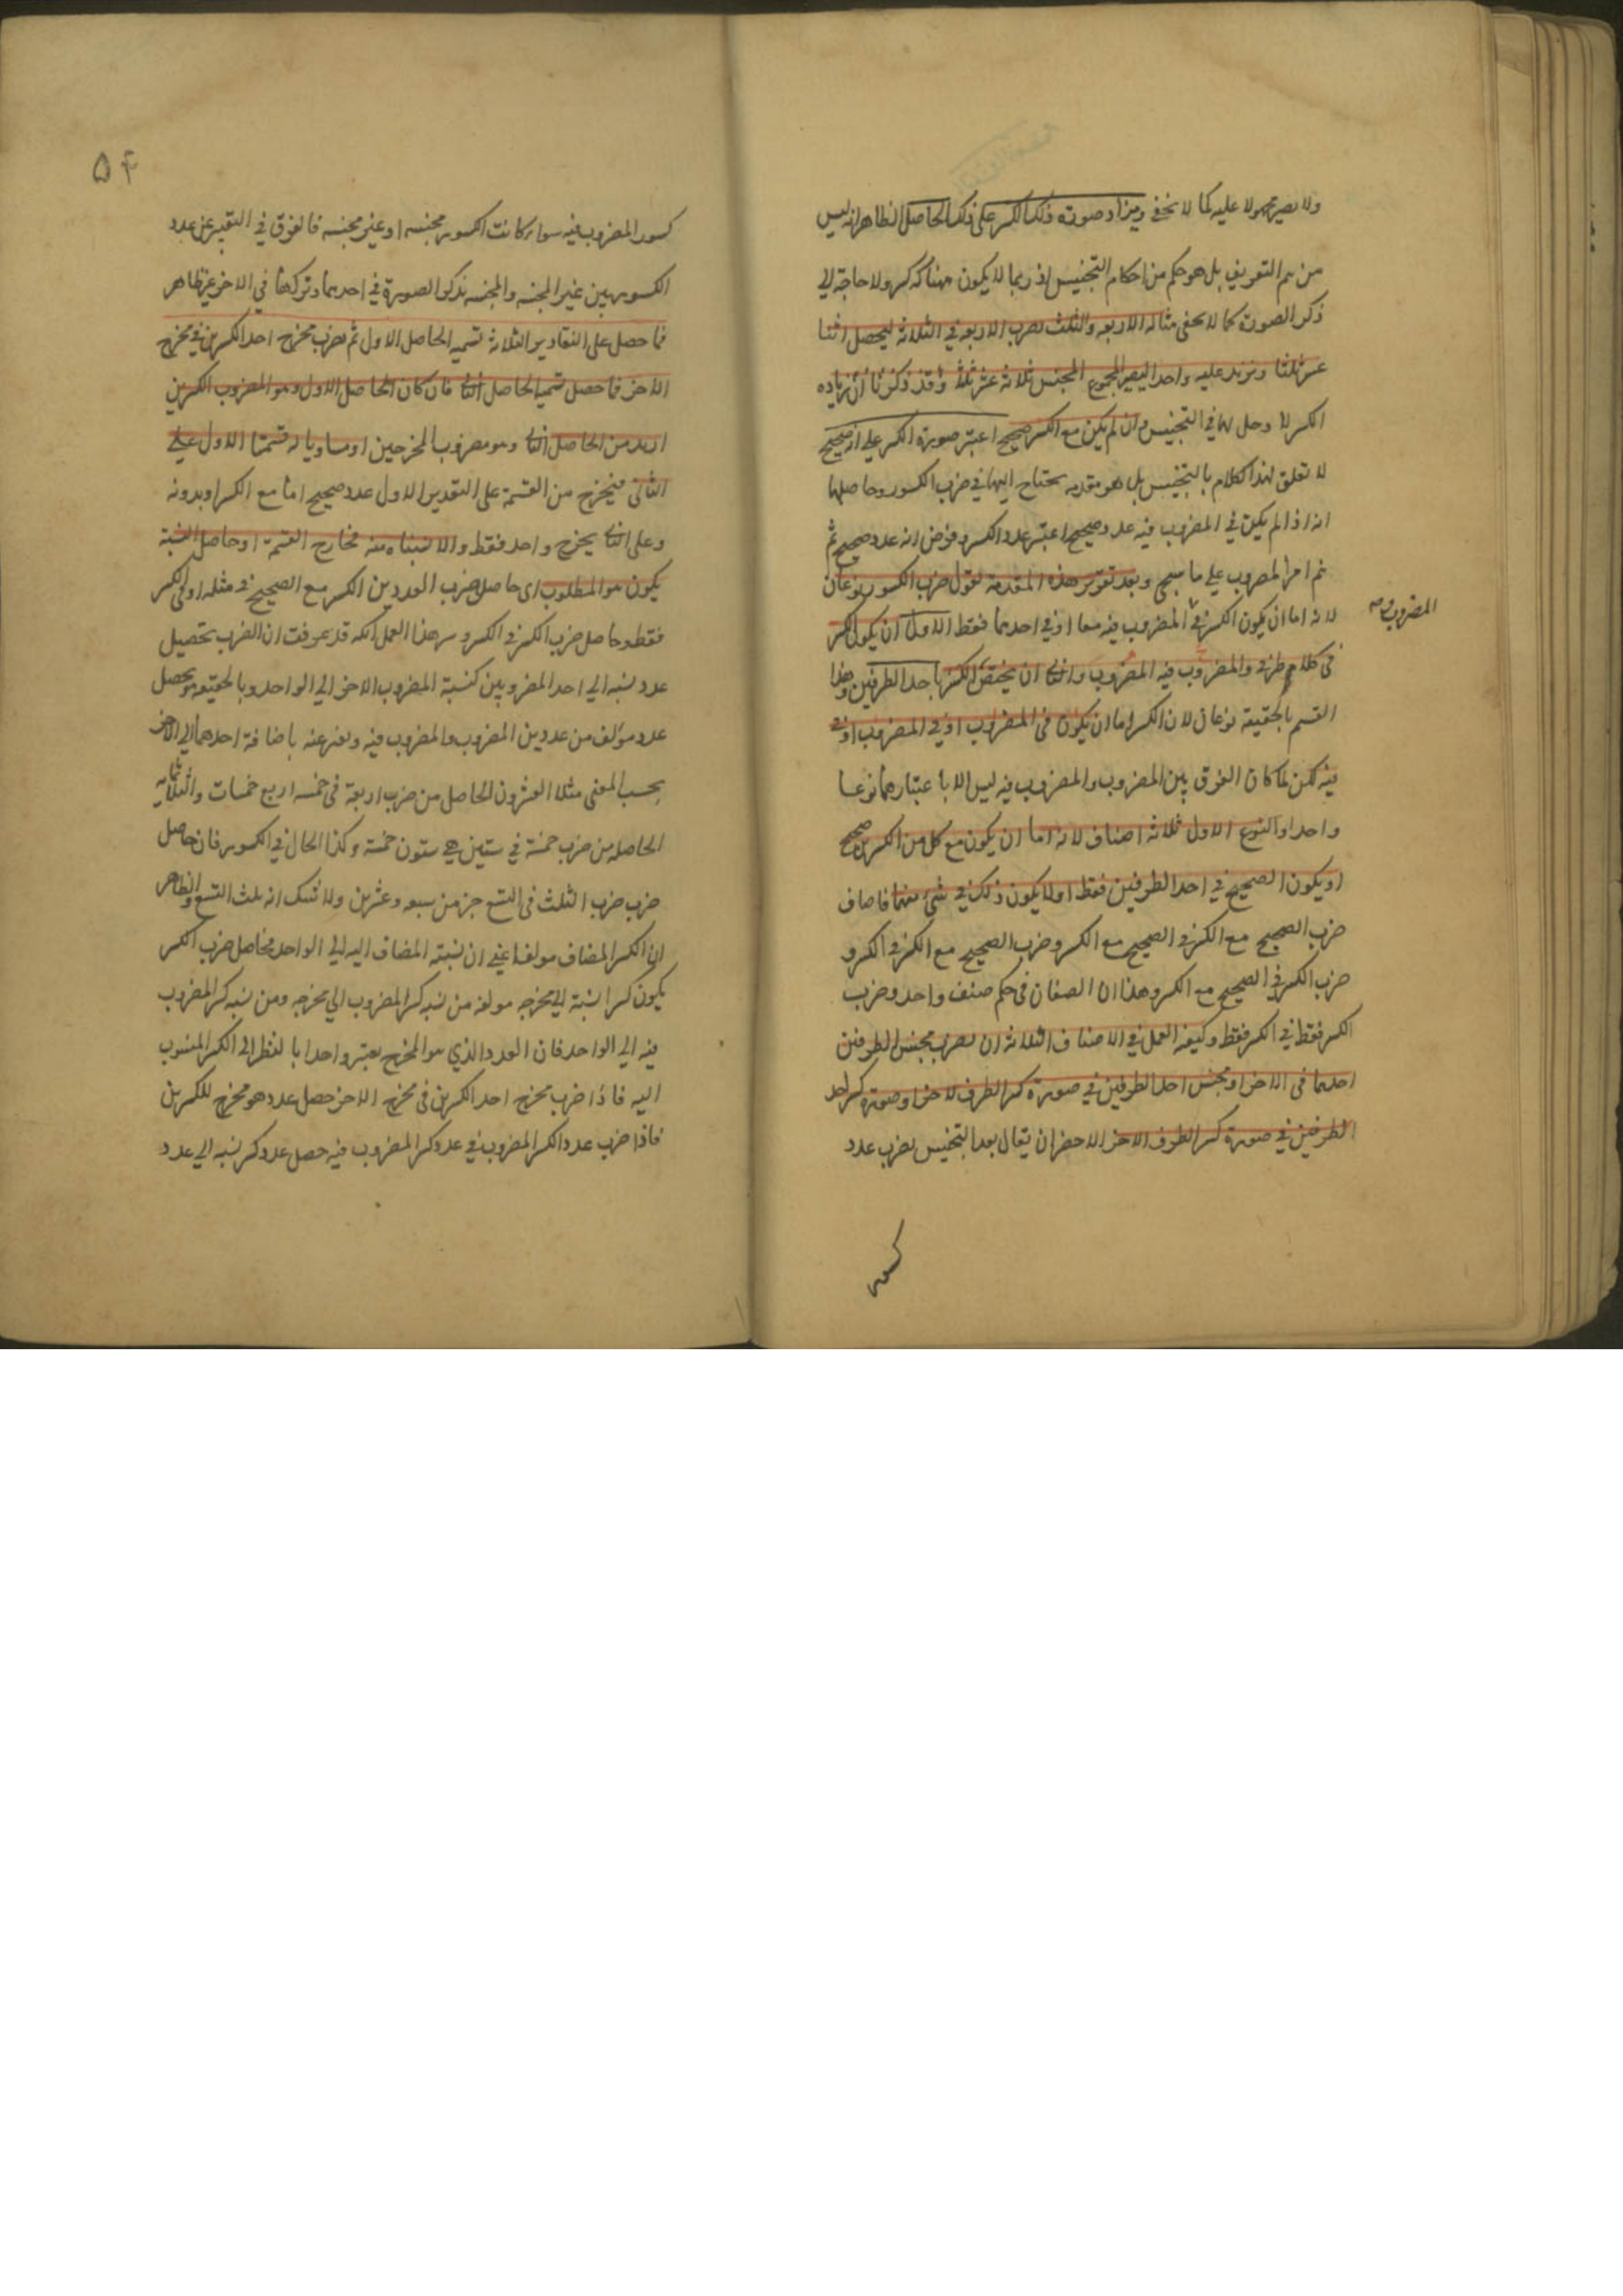 ولا يصير محمولا عليه كما لا يخفى ويزاد صورة ذلك الكسر على ذلك الحاصل الظاهر انه ليس
من التعريف بل هو حكم من احكام التجنيس اذ ربما لا يكون هناك كسر ولا حاجة الى
ذكر الصورة كما لا يخفى مثاله الاربعة والثلث يضرب الاربعة في الثلاثة ليحصل اثنا
عشر ثلثا ونزيد عليه واحدا ليصير المجموع المجنس ثلاثة عشر ثلثا وقد ذكرنا ان زيادة
الكسر لا دخل لها في التجنيس وان لم يكن مع الكسر صحيح اعتبر صورة الكسر على انه صحيح
لا تعلق لهذا الكلام بالتجنيس بل هو مقدمة يحتاج اليها في ضرب الكسور وحاصلها
انه اذا لم يكن في المضروب فيه عدد صحيح اعتبر عدد الكسر وفرض انه عدد صحيح ثم
تم امر الضرب على ما سيجئ وبعد تقرير هذه المقدمة نقول ضرب الكسور نوعان
المضروب
لانه اما ان يكون الكسر في المضروب فيه معا او في احدهما فقط الاول ان يكون الكسر
في كلا طرفي والمضروب فيه المضروب والثاني ان يختص الكسر باحد الطرفين وهذا
القسم بالحقيقة نوعان لان الكسر اما ان يكون في المضروب او في المضروب
فيه لكن لما كان الفرق بين المضروب والمضروب فيه ليس الا باعتبارهما نوعا
واحدا والنوع الاول ثلاثة اصناف لانه اما ان يكون مع كل من الكسرين صحيح
او يكون الصحيح في احد الطرفين فقط او لا يكون ذلك في شئ منهما فاصناف
ضرب الصحيح مع الكسر في الصحيح مع الكسر وضرب الصحيح مع الكسر في الكسر و
ضرب الكسر في الصحيح مع الكسر وهذا ان الصنفان في حكم صنف واحد وضرب
الكسر فقط في الكسر فقط وكيفية العمل في الاصناف الثلاثة ان يضرب مجنس الطرفين
احدهما في الاخر او مجنس احد الطرفين في صورة كسر الطرف الاخر او صورة كسر احد
الطرفين في صورة كسر الطرف الاخر الاخصر ان يقال بعد التجنيس يضرب عدد
كسور
۵۴
كسور المضروب فيه سواء كانت الكسور مجنسة او غير مجنسة فالفرق في التعبير عن عدد
الكسور بين غير المجنسة والمجنسة بذكر الصورة في احدهما وتركها في الاخر غير ظاهر
فما حصل على التقادير الثلاثة نسميه الحاصل الاول ثم يضرب مخرج احد الكسرين في مخرج
الاخر فما حصل نسميه الحاصل الثاني فان كان الحاصل الاول وهو المضروب الكسرين
ازيد من الحاصل الثاني وهو مضروب المخرجين او مساويا له قسمنا الاول على
الثاني فيخرج من القسمة على التقدير الاول عدد صحيح اما مع الكسر او بدونه
وعلى الثاني يخرج واحد فقط والا نسبناه منه فخارج القسمة او حاصل النسبة
يكون هو المطلوب اى حاصل ضرب العددين الكسر مع الصحيح في مثله او في الكسر
فقط وحاصل ضرب الكسر في الكسر وسر هذا العمل انك قد عرفت ان الضرب تحصيل
عدد نسبته الى احد المضروبين كنسبة المضروب الاخر الى الواحد وبالحقيقة هو تحصيل
عدد مؤلف من عددين المضروب والمضروب فيه ويعبر عنه باضافة احدهما الى الاخر
بحسب المعنى مثلا العشرون الحاصل من ضرب اربعة في خمسة اربع خمسات والثلثمائه
الحاصلة من ضرب خمسة في ستين هي ستون خمسة وكذا الحال في الكسور فان حاصل
ضرب ضرب الثلث في التسع جزء من سبعة وعشرين ولا شك انه ثلث التسع والظاهر
ان الكسر المضاف مؤلف اعني ان نسبته المضاف اليه الى الواحد فحاصل ضرب الكسر
يكون كسرا نسبته الى مخرجه مولفة من نسبة كسر المضروب الى مخرجه ومن نسبة كسر المضروب
فيه الى الواحد فان العدد الذي هو المخرج يعتبر واحدا بالنظر الى الكسر المنسوب
اليه فاذا ضرب مخرج احد الكسرين في مخرج الاخر حصل عدد هو مخرج للكسرين
فاذا ضرب عدد الكسر المضروب في عدد كسر المضروب فيه حصل عدد كسر نسبته الى عدد